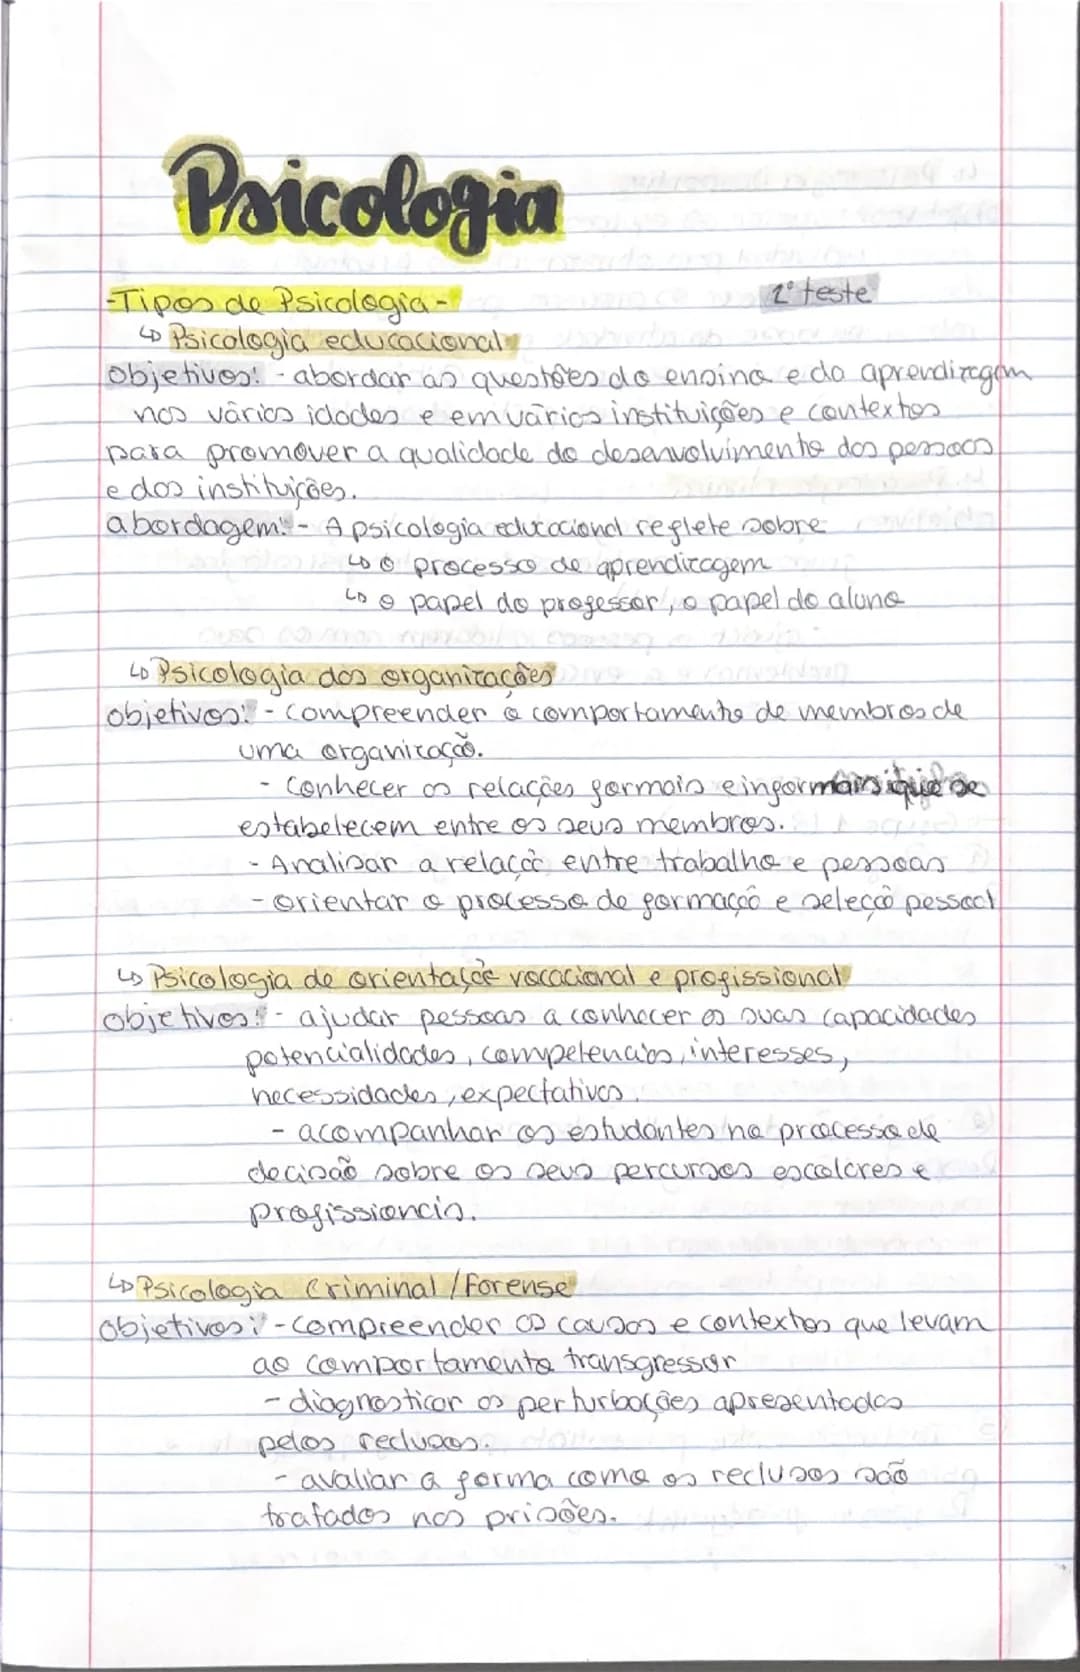 Psicologia
-Tipos de Psicologia-
2º teste
↳ Psicologia educacional
objetivos: - abordar as questões do ensino e da aprendizagem
nas várias idades e em vários instituições e contextos
para promover a qualidade do desenvolvimento das pessoas
e das instituições.
abordagem: - A psicologia educacional reflete sobre
↳ o processo de aprendizagem
↳ o papel do professor, o papel do aluno
↳ Psicologia das organizações
objetivos: - compreender o comportamento de membros de
uma organização.
- Conhecer as relações formais e informais que se
estabelecem entre os seus membros.
- Analisar a relação entre trabalho e pessoas
- orientar o processo de formação e seleção pessoal
↳ Psicologia de orientação vocacional e profissional
objetivos: - ajudar pessoas a conhecer as suas capacidades
potencialidades, competencias, interesses,
necessidades, expectativas.
- acompanhar os estudantes no processo de
decisão sobre os seus percursos escolares e
profissionais.
↳ Psicologia Criminal / Forense
objetivos: - compreender as causas e contextos que levam
ao comportamento transgressor
- diagnosticar as perturbações apresentadas
pelos reclusos.
- avaliar a forma como os reclusos são
tratados nas prisões.